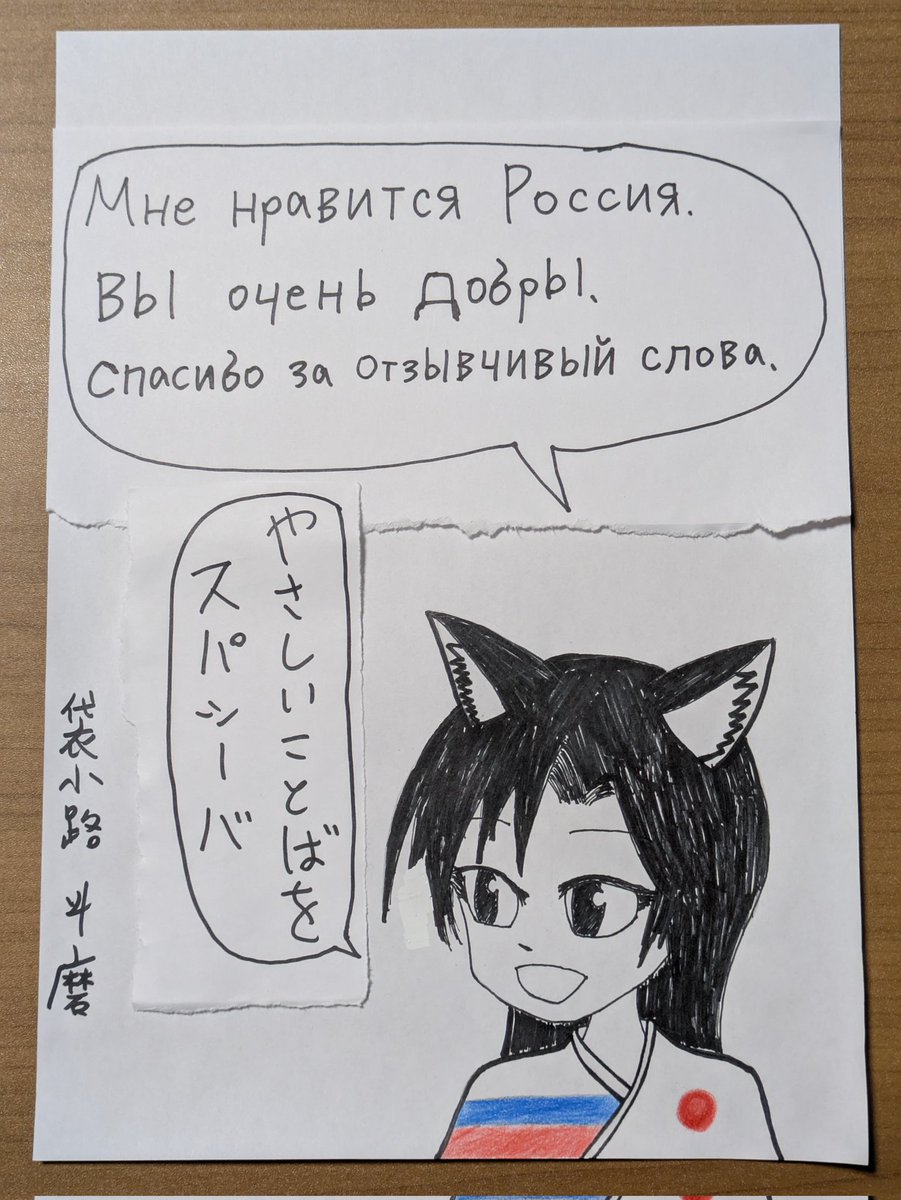 Мне нравится Россия.
Вы очень добры.
Спасибо за отзывчивый слова.
やさしいことばを
スパシーバ
袋小路 斗磨